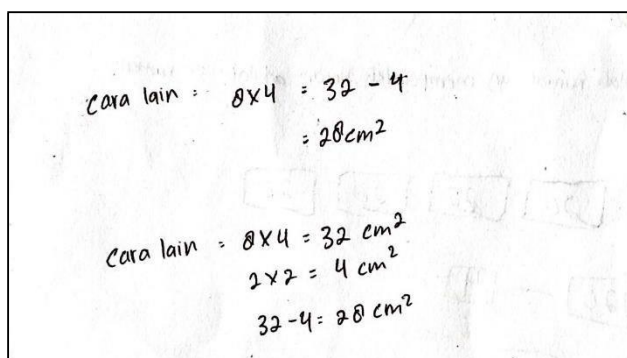 cara lain = 8x4 = 32 - 4
= 28cm²
cara lain = 8x4 = 32 cm²
2x2 = 4 cm²
32-4 = 28 cm²